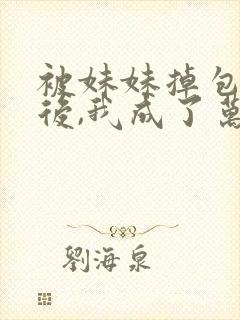 被妹妹掉包
後,我成了萬
劉海泉